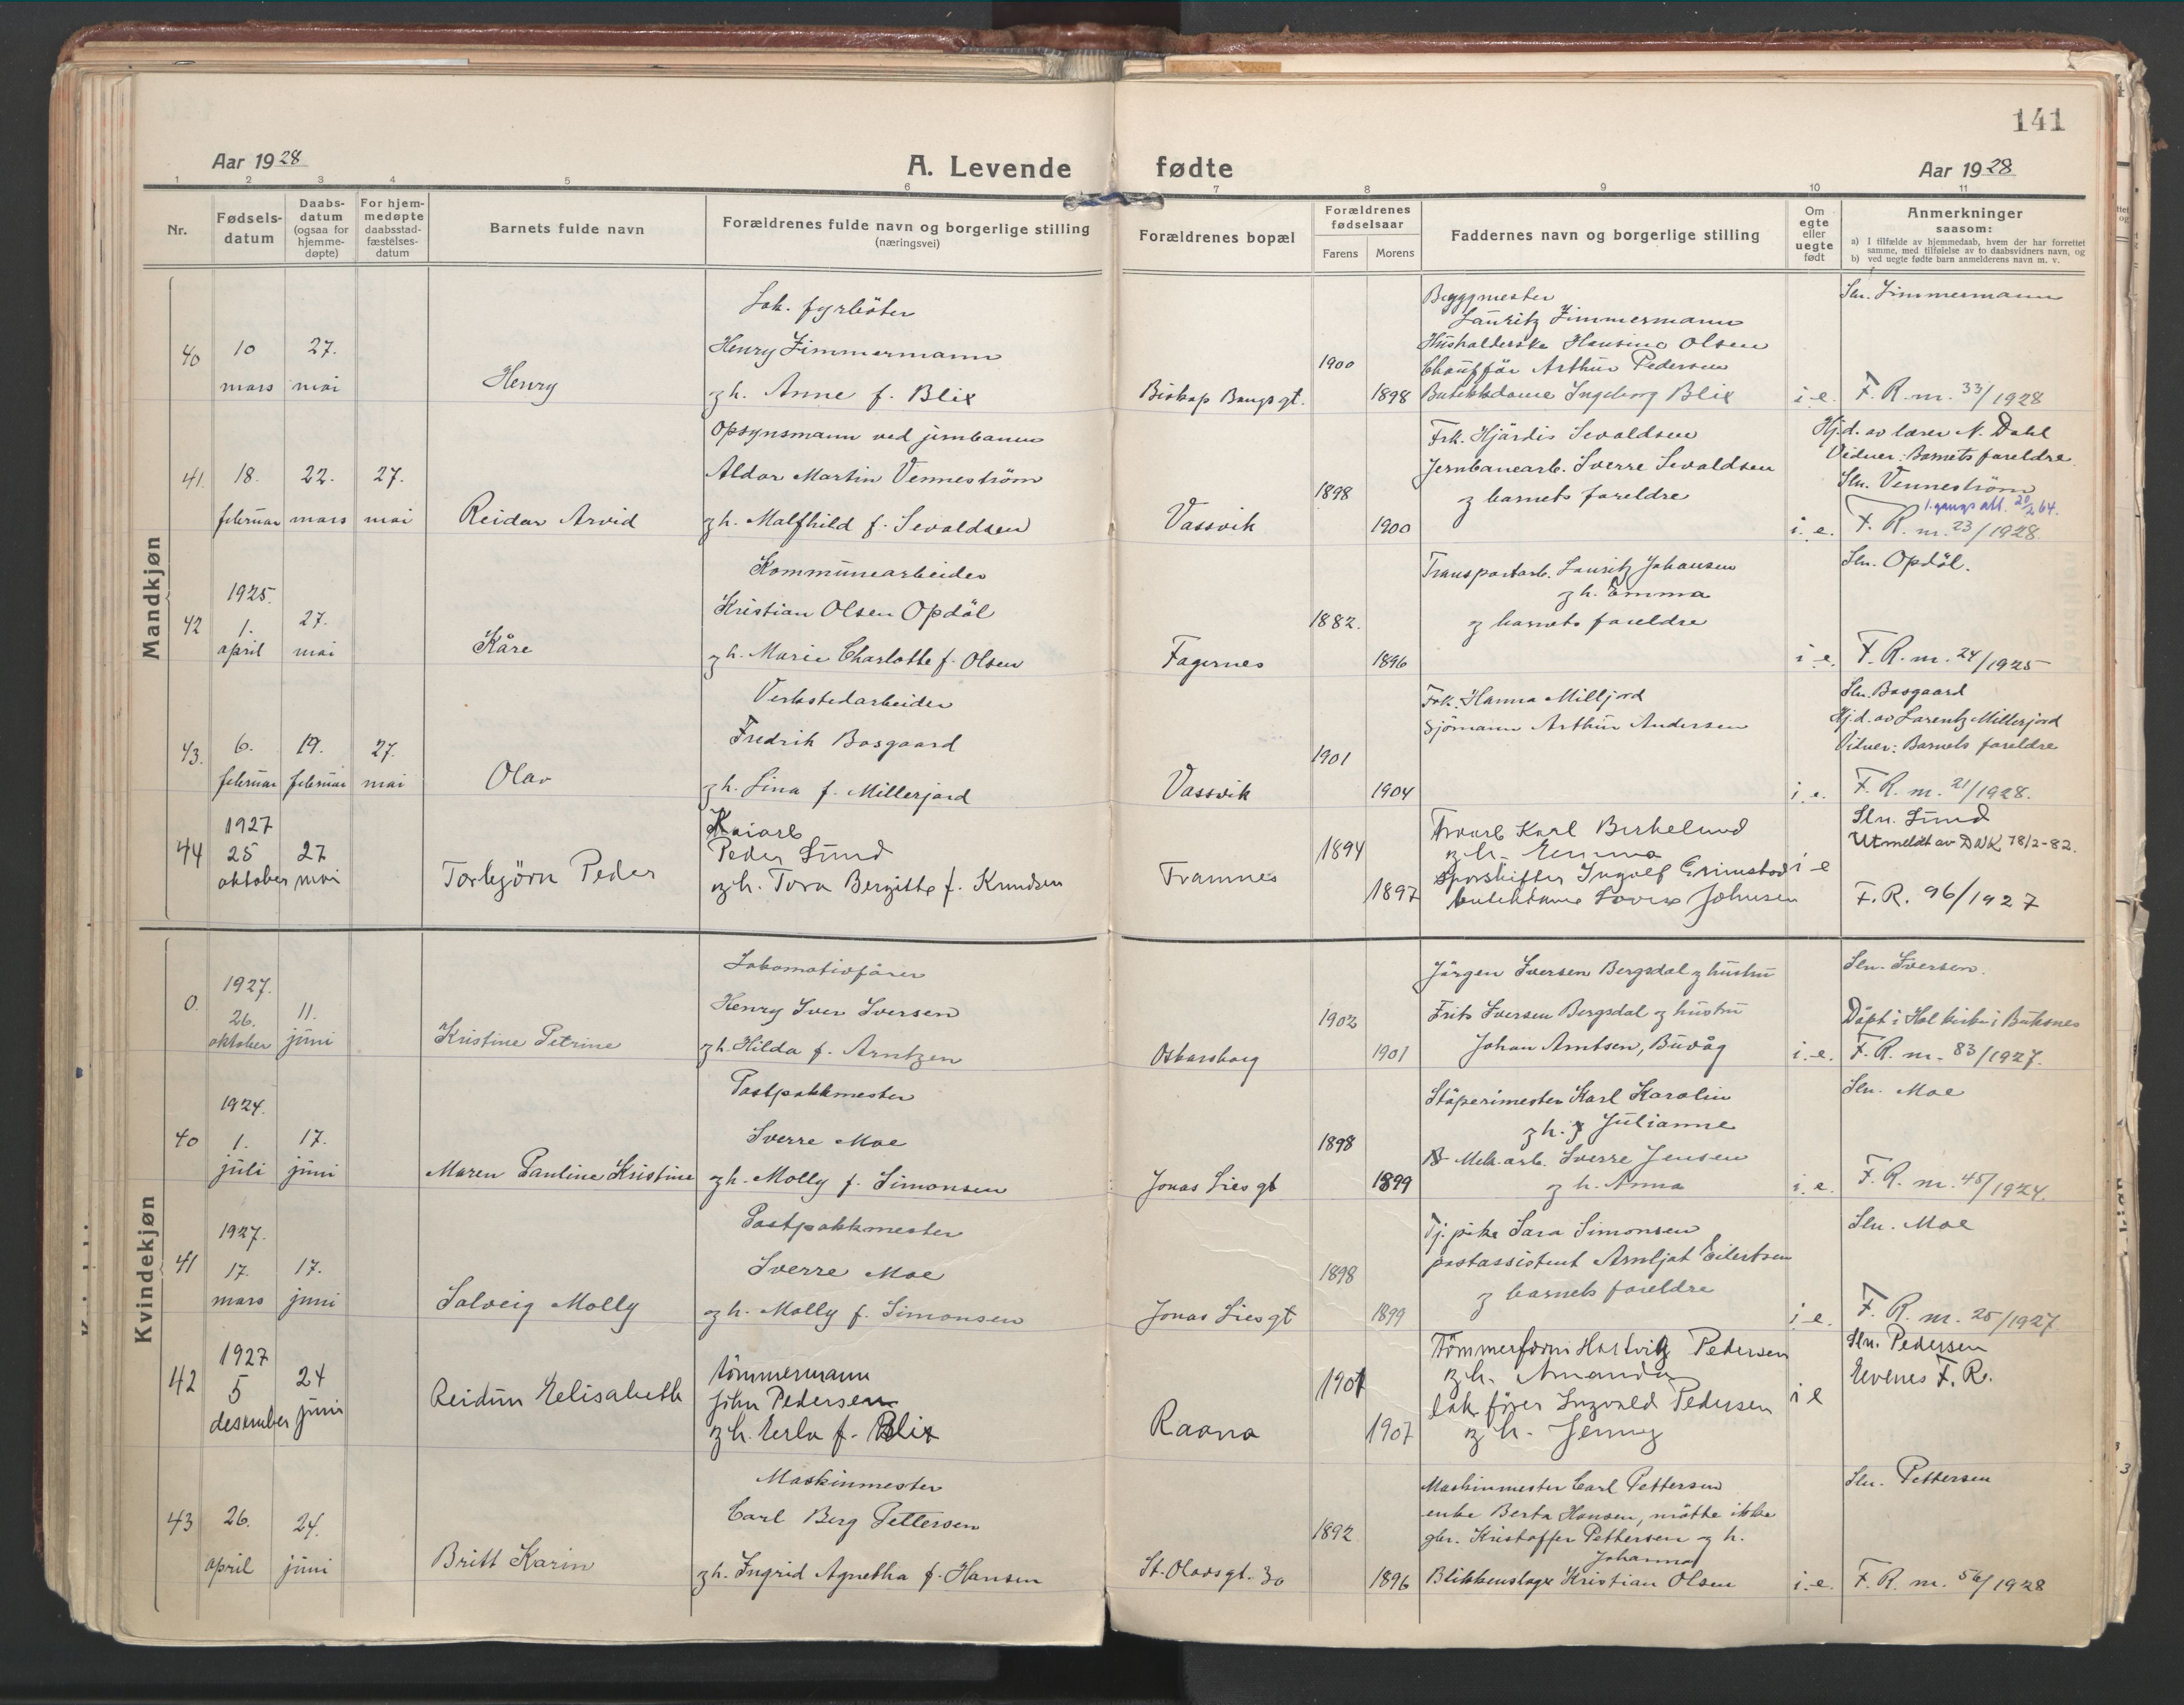 141
Aar 1928
A. Levende fødte
Aar 1928
1 2 3 4 5 6 7 8 9 10 11
Nr.
Fødsels-datum
Daabs-datum (ogsaa for hjemme-døpte)
For hjem-medøpte daabsstad-fæstelses-datum
Barnets fulde navn
Forældrenes fulde navn og borgerlige stilling (næringsvei)
Forældrenes bopæl
Forældrenes fødselsaar
Farens
Morens
Faddernes navn og borgerlige stilling
Om egte eller uegte født
Anmerkninger saasom:
a) I tilfælde av hjemmedaab, hvem der har forrettet samme, med tilføielse av to daabsvidners navn, og
b) ved uegte fødte barn anmelderens navn m. v.
Mandkjøn
40
10 mars
27. mai
Henry
Lok. fyrböter
Henry Zimmermann
og h. Anne f. Blix
Biskop Bangs gt.
1900
1898
Byggmester
Lauritz Zimmermann
Husholderske Hansine Olsen
Chaufför Arthur Pedersen
Butikkdame Ingeborg Blix
i. e.
Sln. Zimmermann
F. R. nr. 33/1928
41.
18. februar
22. mars
27. mai
Reidar Arvid
Opsynsmann ved jernbanen
Aldor Martin Venneström
og h. Malfhild f. Sevaldsen
Vassvik
1898
1900
Frk. Hjördis Sevaldsen
Jernbanearb. Sverre Sevaldsen
og barnets foreldre
i. e.
Hj.d. av lærer N. Dahl
Vidner: Barnets foreldre
Sln. Venneström
1. gangs att. 20/2 64.
F. R. nr. 23/1928.
42
1925.
1. april
27. mai
Kåre
Kommunearbeider
Kristian Olsen Opdöl
og h. Marie Charlotte f. Olsen
Fagernes
1882.
1896
Transportarb. Lauritz Johansen
og h. Emma
og barnets foreldre
i. e.
Sln. Opdöl.
F. R. nr. 24/1925
43.
6. februar
19. februar
27. mai
Olav
Verkstedarbeider
Fredrik Bosgaard
og h. Lina f. Millerjord
Vassvik
1901
1904
Frk. Hanna Milljord
Sjömann Arthur Andersen
i. e.
Sln. Bosgaard
Hj.d. av Lorentz Millerjord
Vidner: Barnets foreldre
F. R. nr. 21/1928.
44
1927
25 oktober
27 mai
Torbjörn Peder
Kaiarb
Peder Lund
og h. Tora Bergitte f. Knudsen
Framnes
1894
1897
Karl Birkelund
og h. Emma
Sporskifter Ingolf Grimstad
butikkdame Johnsen
i e
Sln. Lund
Utmeldt av DNK 18/2-82.
F. R. 96/1927
Kvindekjøn
0.
1927.
26. oktober
11. juni
Kristine Petrine
Lokomotivförer
Henry Iver Iversen
og h. Hilda f. Arntzen
Oskarsborg
1902
1901
Jörgen Iversen Bergsdal og hustru
Frits Iversen Bergsdal og hustru
Johan Arntsen, Buvåg
i. e.
Sln. Iversen.
Döpt i Hol kirke i Buksnes
F. R. nr. 83/1927.
40
1924.
1. juli
17. juni
Maren Pauline Kristine
Postpakkmester
Sverre Moe
og h. Molly f. Simonsen
Jonas Lies gt
1898
1899
Stöperimester Karl Karolin
og h. Julianne
Mek. arb. Sverre Jensen
og h. Anna
i. e.
Sln. Moe
F. R. nr. 45/1924.
41
1927.
17. mars
17. juni
Solveig Molly
Postpakkmester
Sverre Moe
og h. Molly f. Simonsen
Jonas Lies gt
1898
1899
Tj. pike Sara Simonsen
postassistent Arnljot Eilertsen
og barnets foreldre
i. e.
Sln. Moe
F. R. nr. 25/1927
42
1927
5 desember
24 juni
Reidun Elisabeth
tömmermann
John Pedersen
og h. Erla f. Blix
Raana
1901
1907
Tömmerform Hartvik Pedersen
og h. Amanda
lok förer Ingvald Pedersen
og h. Jenny
i e
Sln. Pedersen
Evenes F. R.
43
26. april
24. juni
Britt Karin
Maskinmester
Carl Berg Pettersen
og h. Ingrid Agnetha f. Hansen
St. Olavsgt. 30
1892
1896
Maskinmester Carl Pettersen
enke Berta Hansen, mötte ikke
gbr. Kristoffer Pettersen og h.
Johanna
Blikkenslager Kristian Olsen
i. e.
Sln. Pettersen
F. R. nr. 56/1928